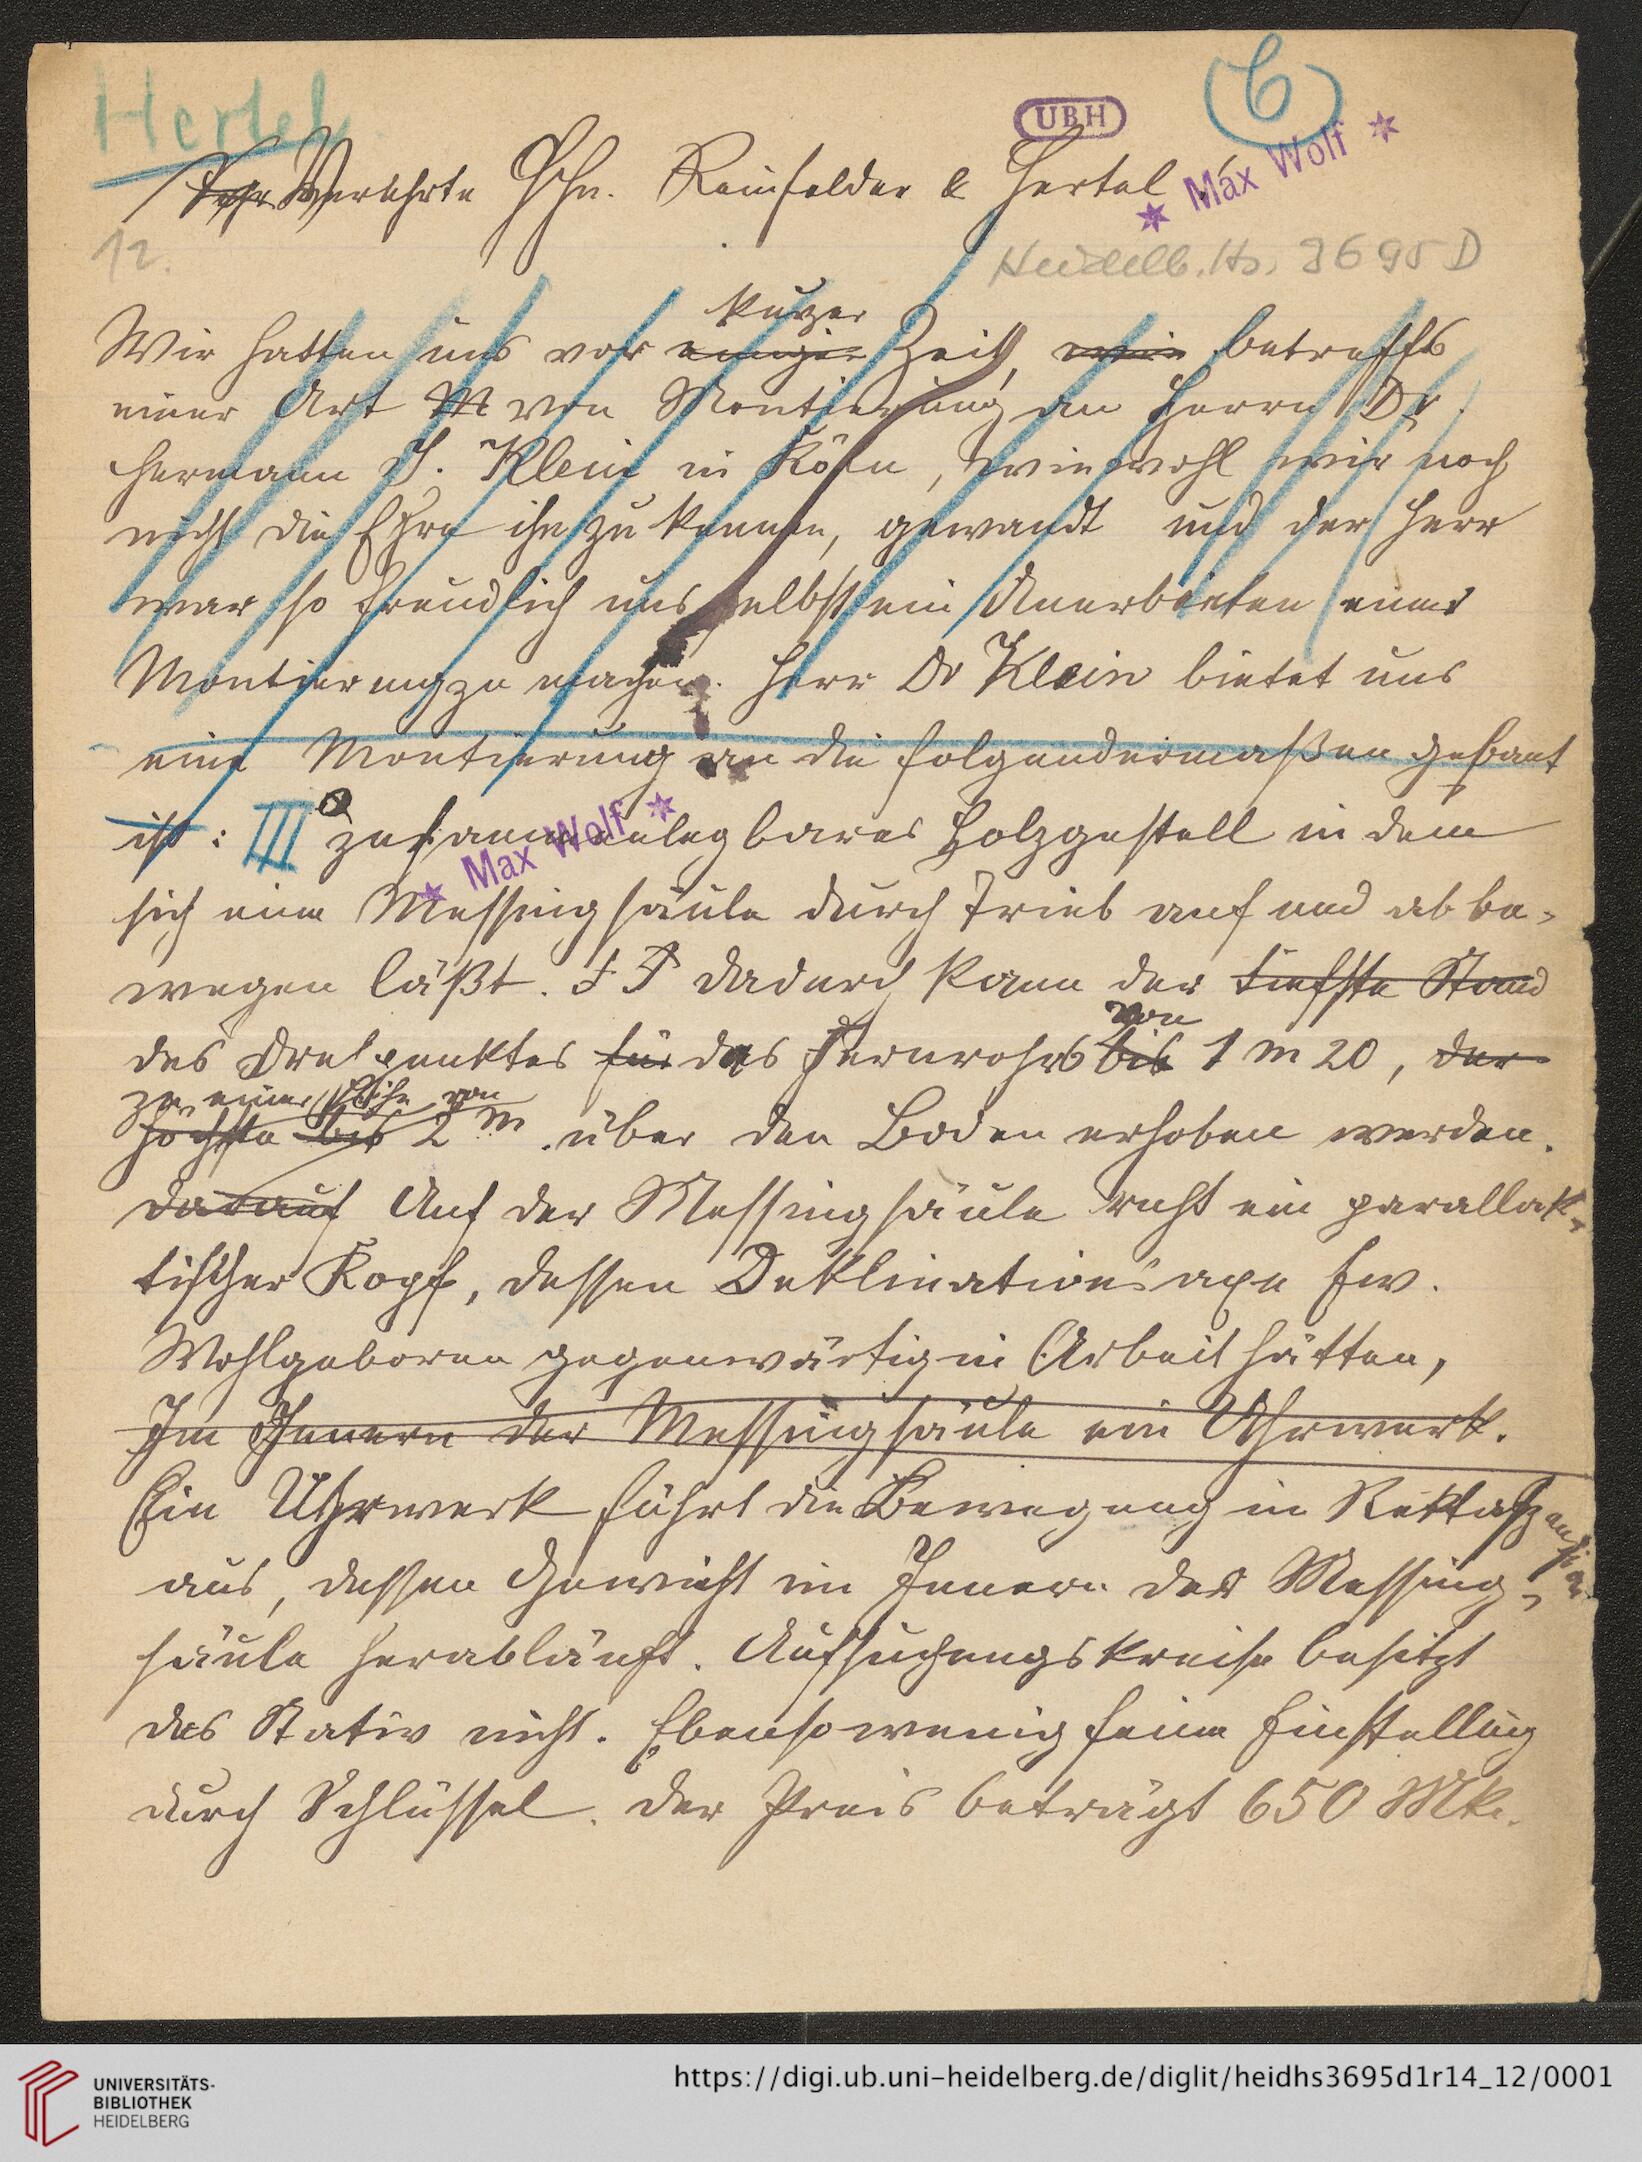 Hertel
UBH
6
* Max Wolf *
Sehr Verehrte HHn. Reinfelder & Hertel
12.
Heidelb. Hs. 3695 D
kurzer
Wir hatten uns vor einiger Zeit, betreffs
einer Art M von Montierung an Herrn Dr.
Hermann J. Klein in Köln, wiewohl wir noch
nicht die Ehre ihn zu kennen, gewandt und der Herr
war so freundlich uns selbst ein Anerbieten einer
Montierung zu machen. Herr Dr Klein bietet uns
eine Montierung an die folgendermaßen gebaut
ist: III zusammenlegbares Holzgestell in dem
* Max Wolf *
sich eine Messingsäule durch Trieb auf und ab be-
wegen läßt. Dadurch kann der tiefste Stand
von
des Drehpunktes für das Fernrohrs bis 1 m 20, der
zu einer Höhe von
höchste bis 2 m. über den Boden erhoben werden.
darauf Auf der Messingsäule ruht ein parallak-
tischer Kopf, dessen Deklinationsaxe Ew.
Wohlgeboren gegenwärtig in Arbeit hätten,
Im Innern der Messingsäule ein Uhrwerk.
Ein Uhrwerk führt die Bewegung in Rektaszension
aus, dessen Gewicht im Innern der Messing-
säule herabläuft. Aufsuchungskreise besitzt
das Stativ nicht. Ebensowenig feine Einstellung
durch Schlüssel. Der Preis beträgt 650 Mk.
UNIVERSITÄTS-
BIBLIOTHEK
HEIDELBERG
https://digi.ub.uni-heidelberg.de/diglit/heidhs3695d1r14_12/0001